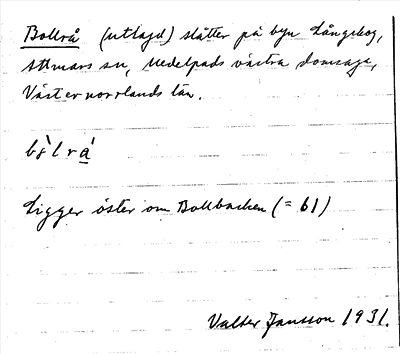 Bollrå (utlagd) slåtter på byn Långskog,
Attmars sn, Medelpads västra domsaga,
Västernorrlands län.
bòlrá
Ligger öster om Bollbacken (= 61)
Valter Jansson 1931.